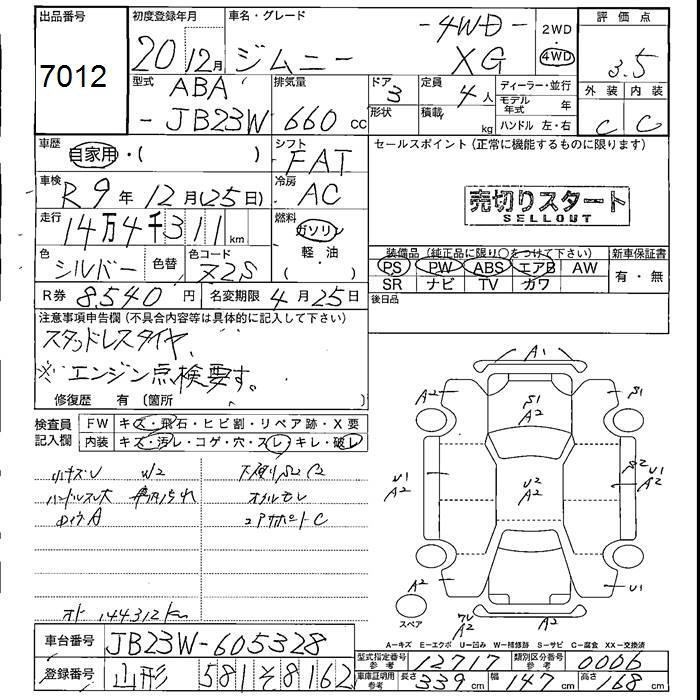 出品番号
7012
初度登録年月
20 12月
車名・グレード
ジムニー
- 4WD -
XG
2WD
・
4WD
評価点
3.5
外装 内装
C C
型式
ABA
- JB23W
排気量
660 cc
ドア
3
形状
定員
4人
積載
kg
ディーラー・並行
モデル年式 年
ハンドル 左・右
車歴
自家用・( )
シフト
FAT
車検
R9年12月(25日)
冷房
AC
走行
14万4千311 km
燃料
ガソリン
軽・油
( ・ )
色
シルバー
色替
色コード
Z2S
R券 8,540円
名変期限 4月25日
セールスポイント (正常に機能するものに限ります)
売切りスタート
SELLOUT
装備品 (純正品に限り○をつけて下さい)
新車保証書
PS PW ABS エアB AW
SR ナビ TV カワ
有・無
後日品
注意事項申告欄 (不具合内容等は具体的に記入して下さい)
スタッドレスタイヤ
※エンジン点検要す。
修復歴 有 (箇所 )
検査員
記入欄
FW キズ・飛石・ヒビ割・リペア跡・X要
内装 キズ・汚レ・コゲ・穴・スレ・キレ・破レ
小キズU W2
下廻りS2C2
ハンドルスレ大
オイルモレ
コアサポートC
オド 144312km
A1
A2 A2
S1
S1
A2
U1
A2
U2
A2
S2 U1
A2
A2
U1
スペア
A2
A－キズ E－エクボ U－凹み W－補修跡 S－サビ C－腐食 XX－交換済
車台番号
JB23W-605328
登録番号
山形 581 そ 8162
型式指定番号
参考
12717
類別区分番号
参考
0006
車庫証明用
参考
長さ 339 cm
幅 147 cm
高さ 168 cm